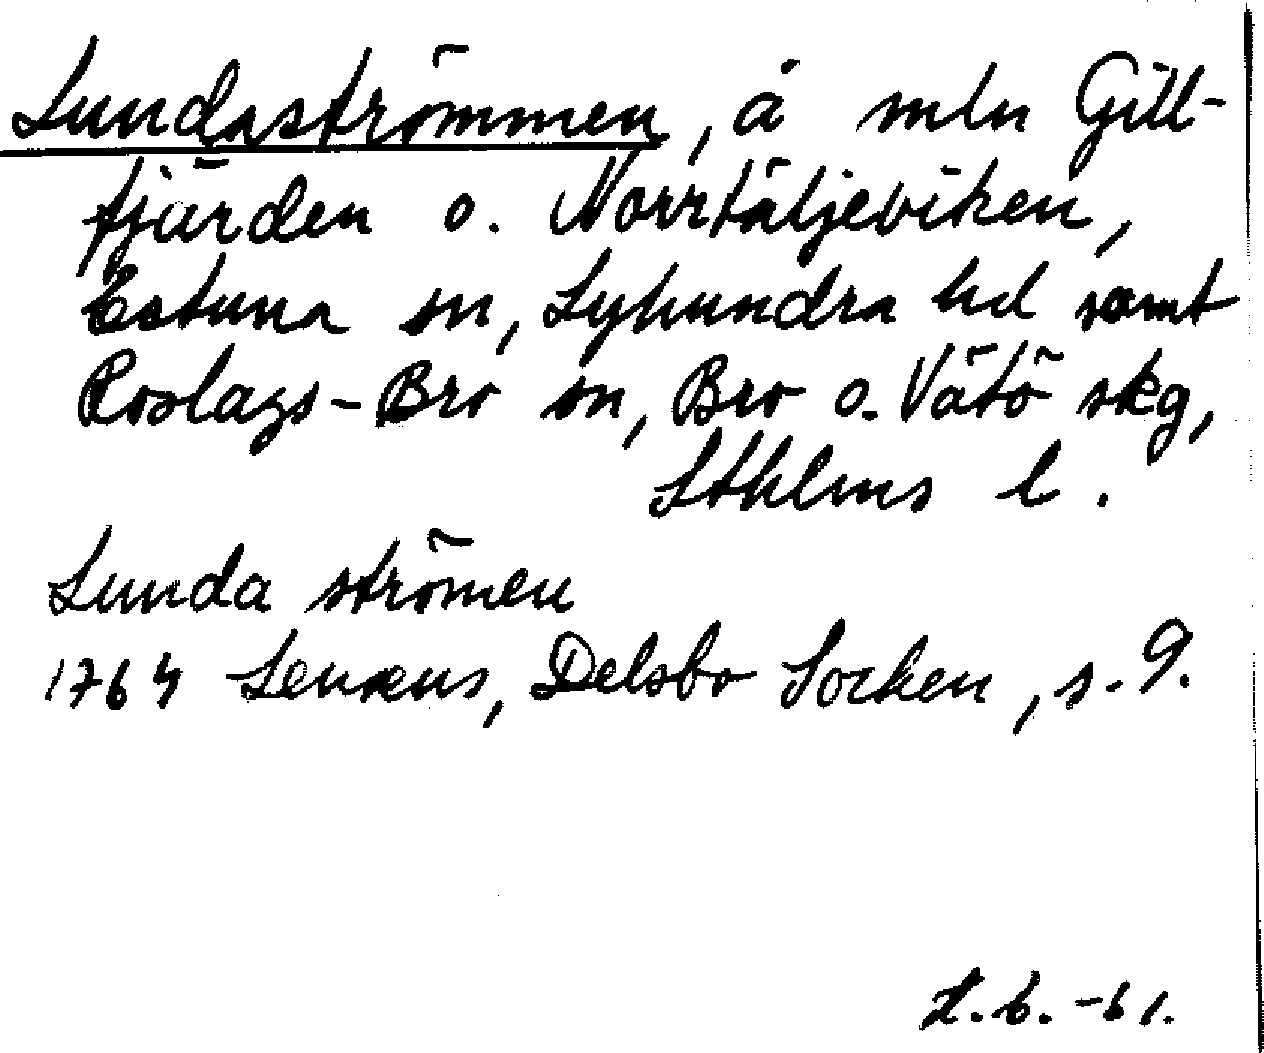 Lundaströmmen, å mln Gill-
fjärden o. Norrtäljeviken,
Estuna sn, Lyhundra hd samt
Roslags-Bro sn, Bro o. Vätö skg,
Sthlms l.
Lunda strömen
1764 Lenæus, Delsbo Socken, s. 9.
L.6.-61.